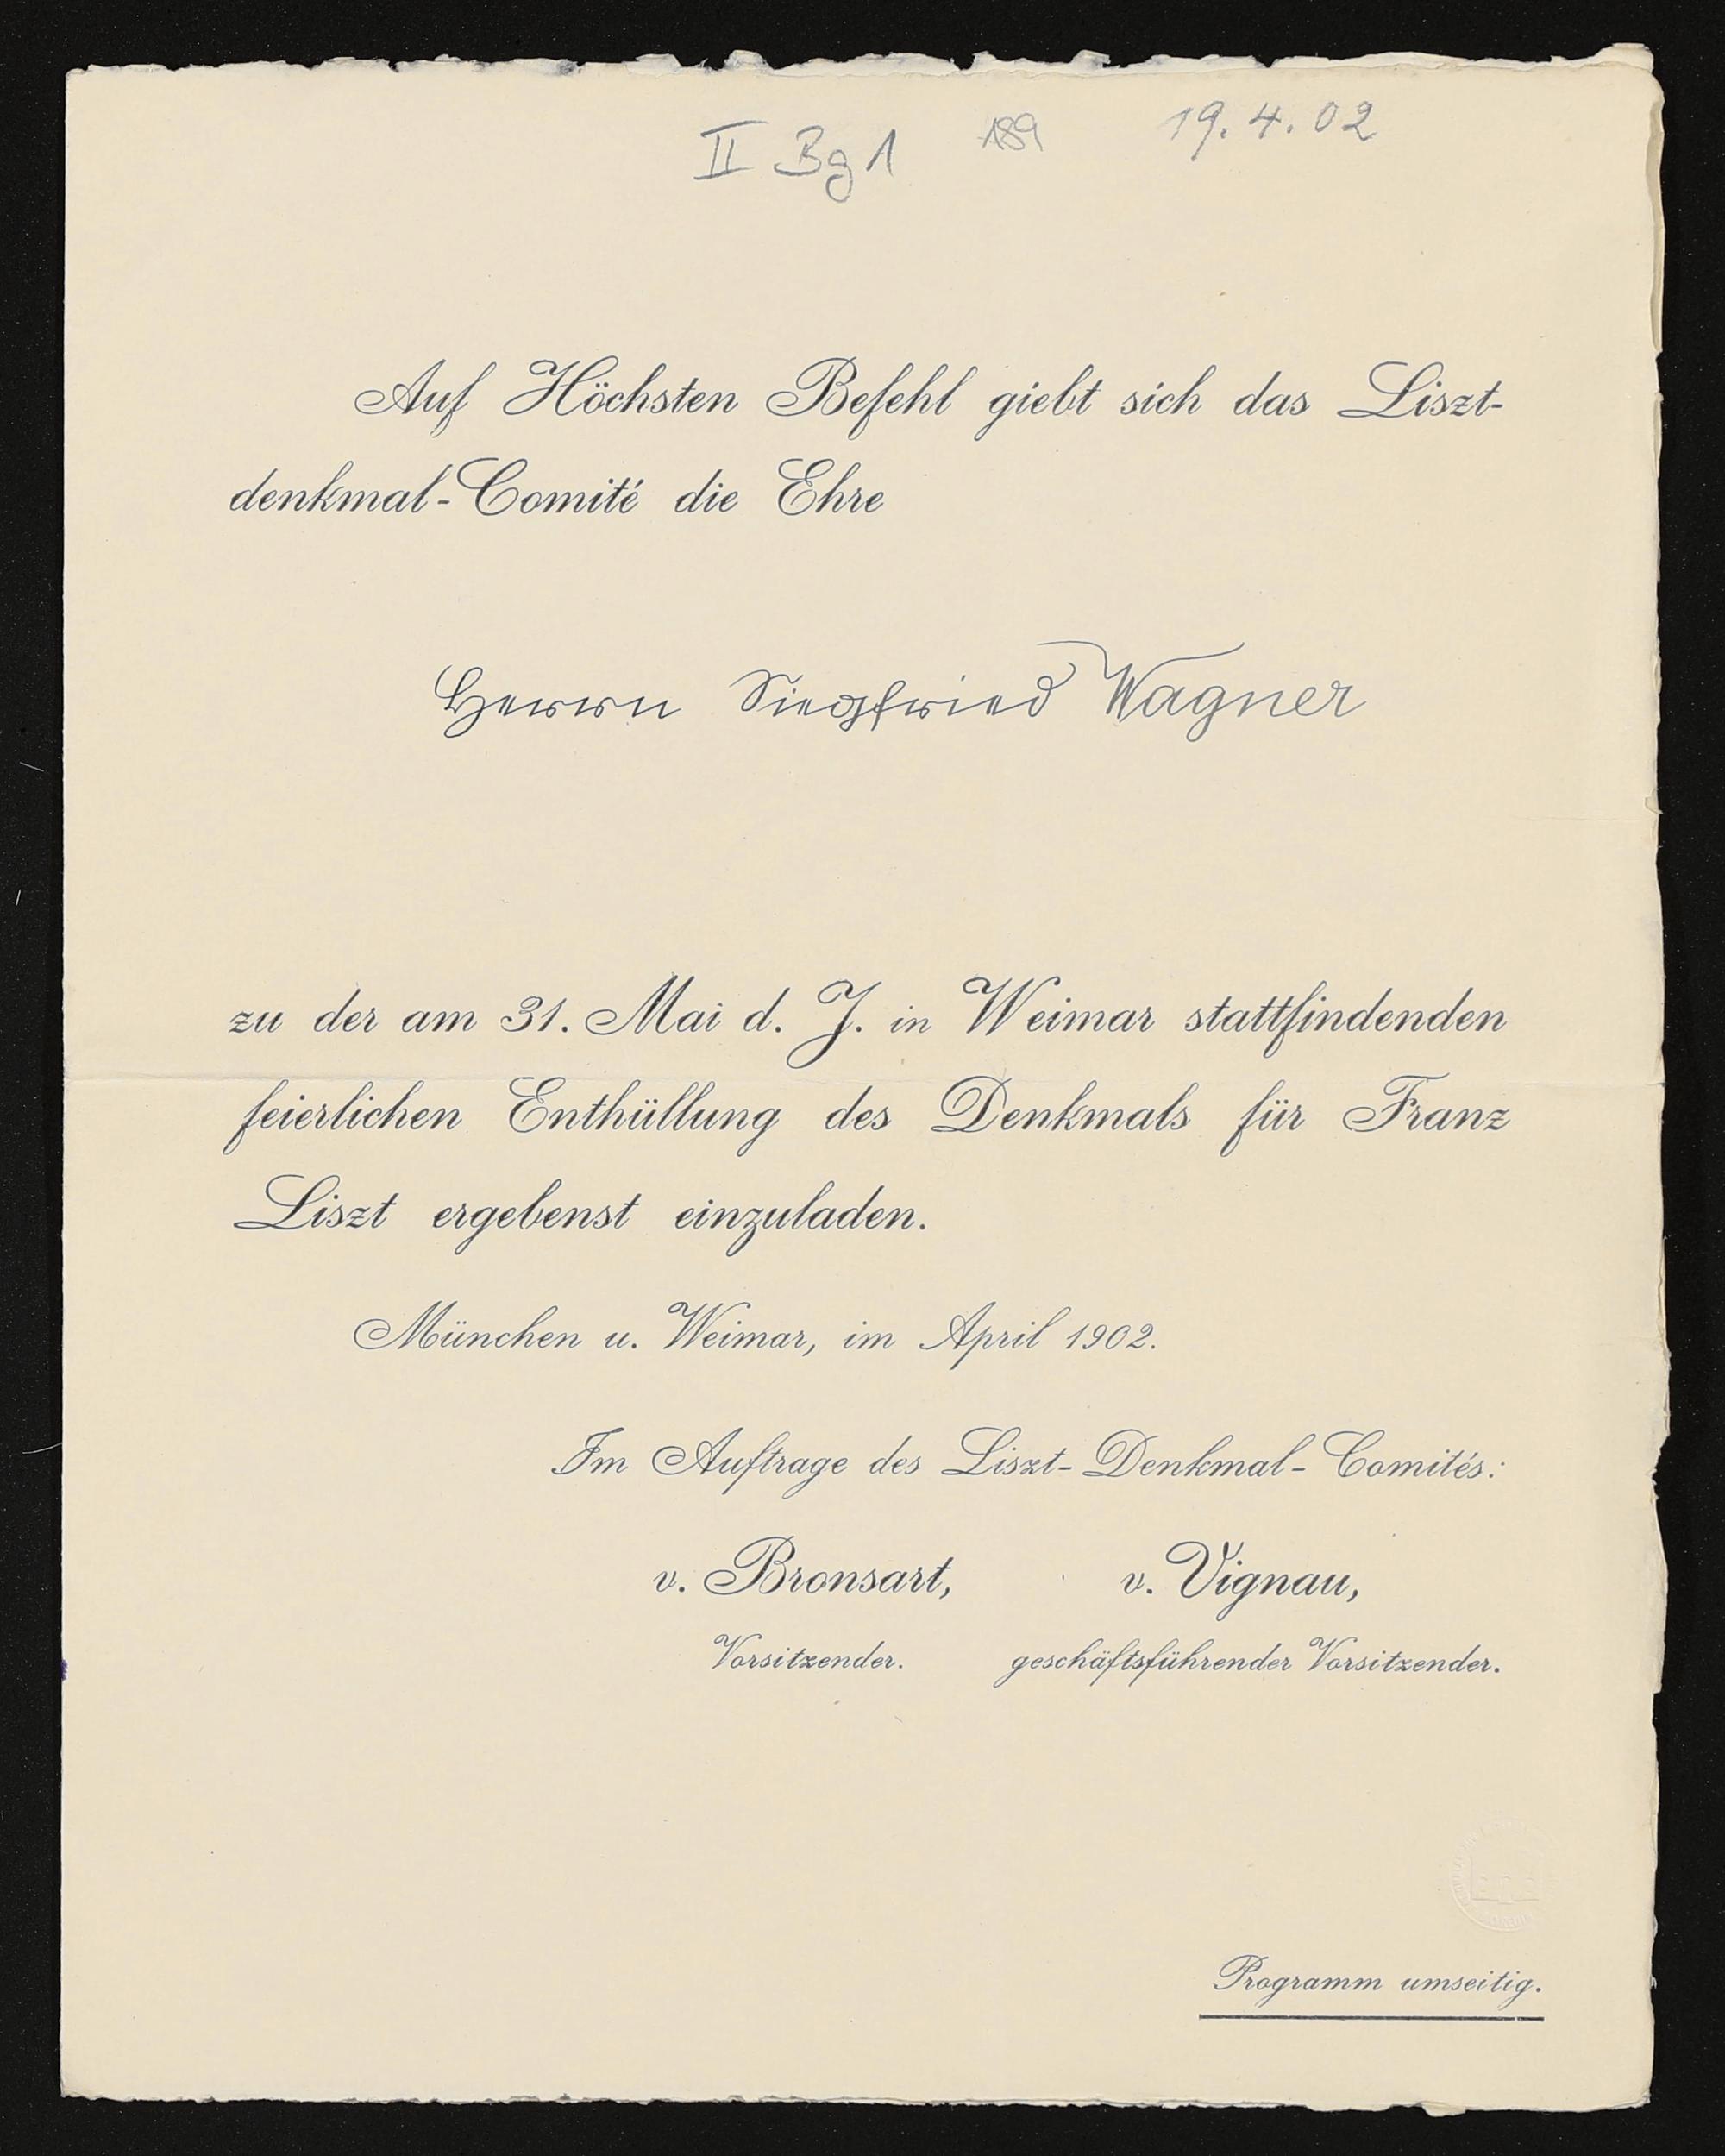 II Bg 1 189 19.4.02
Auf Höchsten Befehl giebt sich das Liszt-
denkmal-Comité die Ehre
Herrn Siegfried Wagner
zu der am 31. Mai d. J. in Weimar stattfindenden
feierlichen Enthüllung des Denkmals für Franz
Liszt ergebenst einzuladen.
München u. Weimar, im April 1902.
Im Auftrage des Liszt-Denkmal-Comités:
v. Bronsart, v. Vignau,
Vorsitzender. geschäftsführender Vorsitzender.
Programm umseitig.